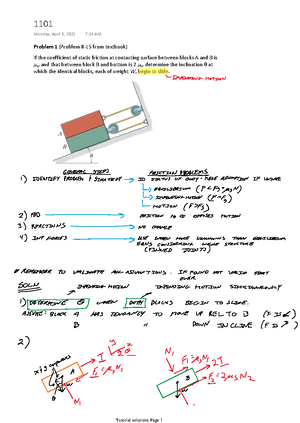 1101
Monday, April 5, 2021 7:24 AM
Problem 1 (Problem 8-15 from textbook)
If the coefficient of static friction at contacting surface between blocks A and B is
μs and that between block B and bottom is 2 μs determine the inclination θ at
which the identical blocks, each of weight W, begin to slide.
IMPENDING MOTION
A
B
θ
GENERAL STEPS FRICTION PROBLEMS
1) IDENTIFY PROBLEM & STRATEGY → ID STATUS OF BODY - MAKE ASSUMPTION IF UNSURE
EQUILIBRIUM (F < Fs = μsN)
IMPENDING MOTION
MOTION
2) FBD → FRICTION OPPOSES MOTION
3) REACTIONS → NO CHANGE
4) INT FORCES → MORE UNKNOWNS THAN EQUILIBRIUM
EQNS CONSIDERING WHOLE STRUCTURE
(PINNED JOINTS)
# REMEMBER TO VALIDATE ALL ASSUMPTIONS. IF FOUND NOT VALID START
OVER
SOLN IMPENDING MOTION IMPENDING MOTION SIMULTANEOUSLY
1) DETERMINE θ WHEN BOTH BLOCKS BEGIN TO SLIDE.
ASSUME: BLOCK A HAS TENDENCY TO MOVE UP REL TO B (F IS ↙)
B " DOWN INCLINE (F IS ↗)
2)
x y
A T
F1 = μsN1
N1
θ
N1
F1 = μsN1
2T
B
F2 = 2μsN2
Tutorial solutions Page 1